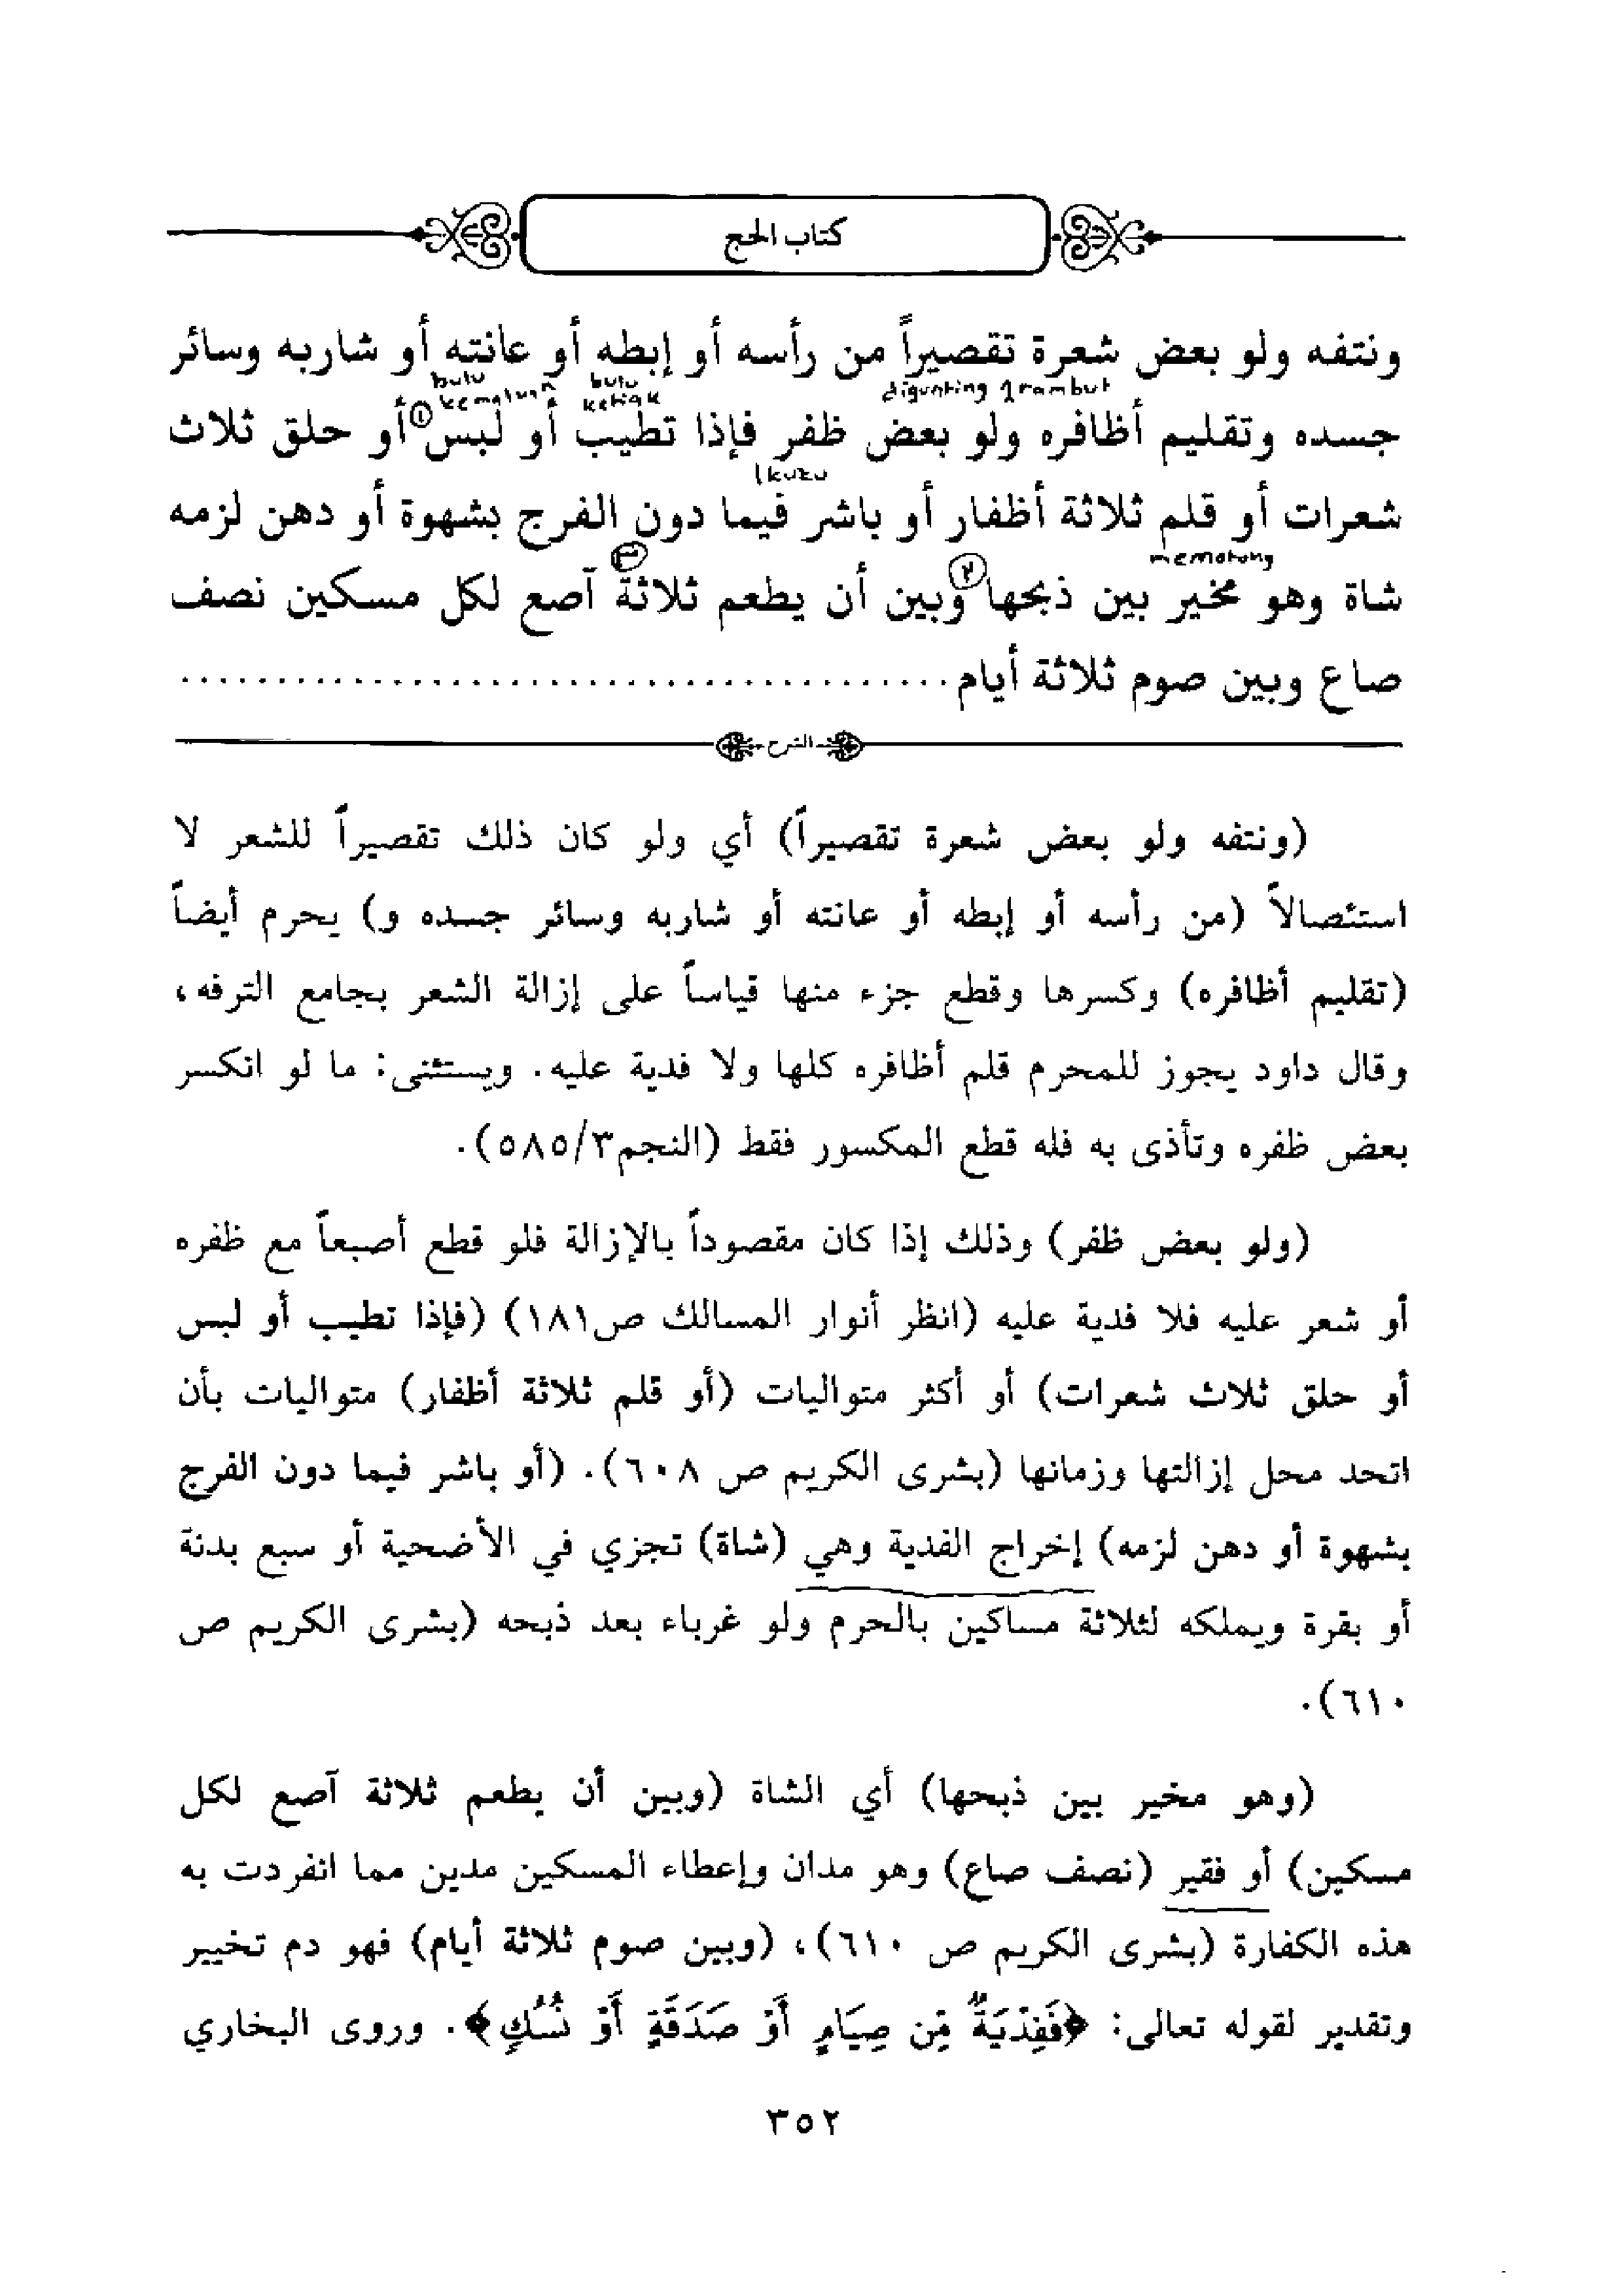 كتاب الحج
ونتفه ولو بعض شعرة تقصيراً من رأسه أو إبطه أو عانته أو شاربه وسائر
bulu kemaluan bulu ketiak digunting 1 rambut
جسده وتقليم أظافره ولو بعض ظفر فإذا تطيب أو لبس ① أو حلق ثلاث
1 kuku
شعرات أو قلم ثلاثة أظفار أو باشر فيما دون الفرج بشهوة أو دهن لزمه
memotong
شاة وهو مخير بين ذبحها ٢ وبين أن يطعم ثلاثة ٣ آصع لكل مسكين نصف
صاع وبين صوم ثلاثة أيام ........................................
الشرح
(ونتفه ولو بعض شعرة تقصيراً) أي ولو كان ذلك تقصيراً للشعر لا
استئصالاً (من رأسه أو إبطه أو عانته أو شاربه وسائر جسده و) يحرم أيضاً
(تقليم أظافره) وكسرها وقطع جزء منها قياساً على إزالة الشعر بجامع الترفه،
وقال داود يجوز للمحرم قلم أظافره كلها ولا فدية عليه. ويستثنى: ما لو انكسر
بعض ظفره وتأذى به فله قطع المكسور فقط (النجم٥٨٥/٣).
(ولو بعض ظفر) وذلك إذا كان مقصوداً بالإزالة فلو قطع أصبعاً مع ظفره
أو شعر عليه فلا فدية عليه (انظر أنوار المسالك ص١٨١) (فإذا تطيب أو لبس
أو حلق ثلاث شعرات) أو أكثر متواليات (أو قلم ثلاثة أظفار) متواليات بأن
اتحد محل إزالتها وزمانها (بشرى الكريم ص ٦٠٨). (أو باشر فيما دون الفرج
بشهوة أو دهن لزمه) إخراج الفدية وهي (شاة) تجزي في الأضحية أو سبع بدنة
أو بقرة ويملكه لثلاثة مساكين بالحرم ولو غرباء بعد ذبحه (بشرى الكريم ص
٦١٠).
(وهو مخير بين ذبحها) أي الشاة (وبين أن يطعم ثلاثة آصع لكل
مسكين) أو فقير (نصف صاع) وهو مدان وإعطاء المسكين مدين مما انفردت به
هذه الكفارة (بشرى الكريم ص ٦١٠)، (وبين صوم ثلاثة أيام) فهو دم تخيير
وتقدير لقوله تعالى: ﴿فَفِدْيَةٌ مِّن صِيَامٍ أَوْ صَدَقَةٍ أَوْ نُسُكٍ﴾. وروى البخاري
٣٥٢